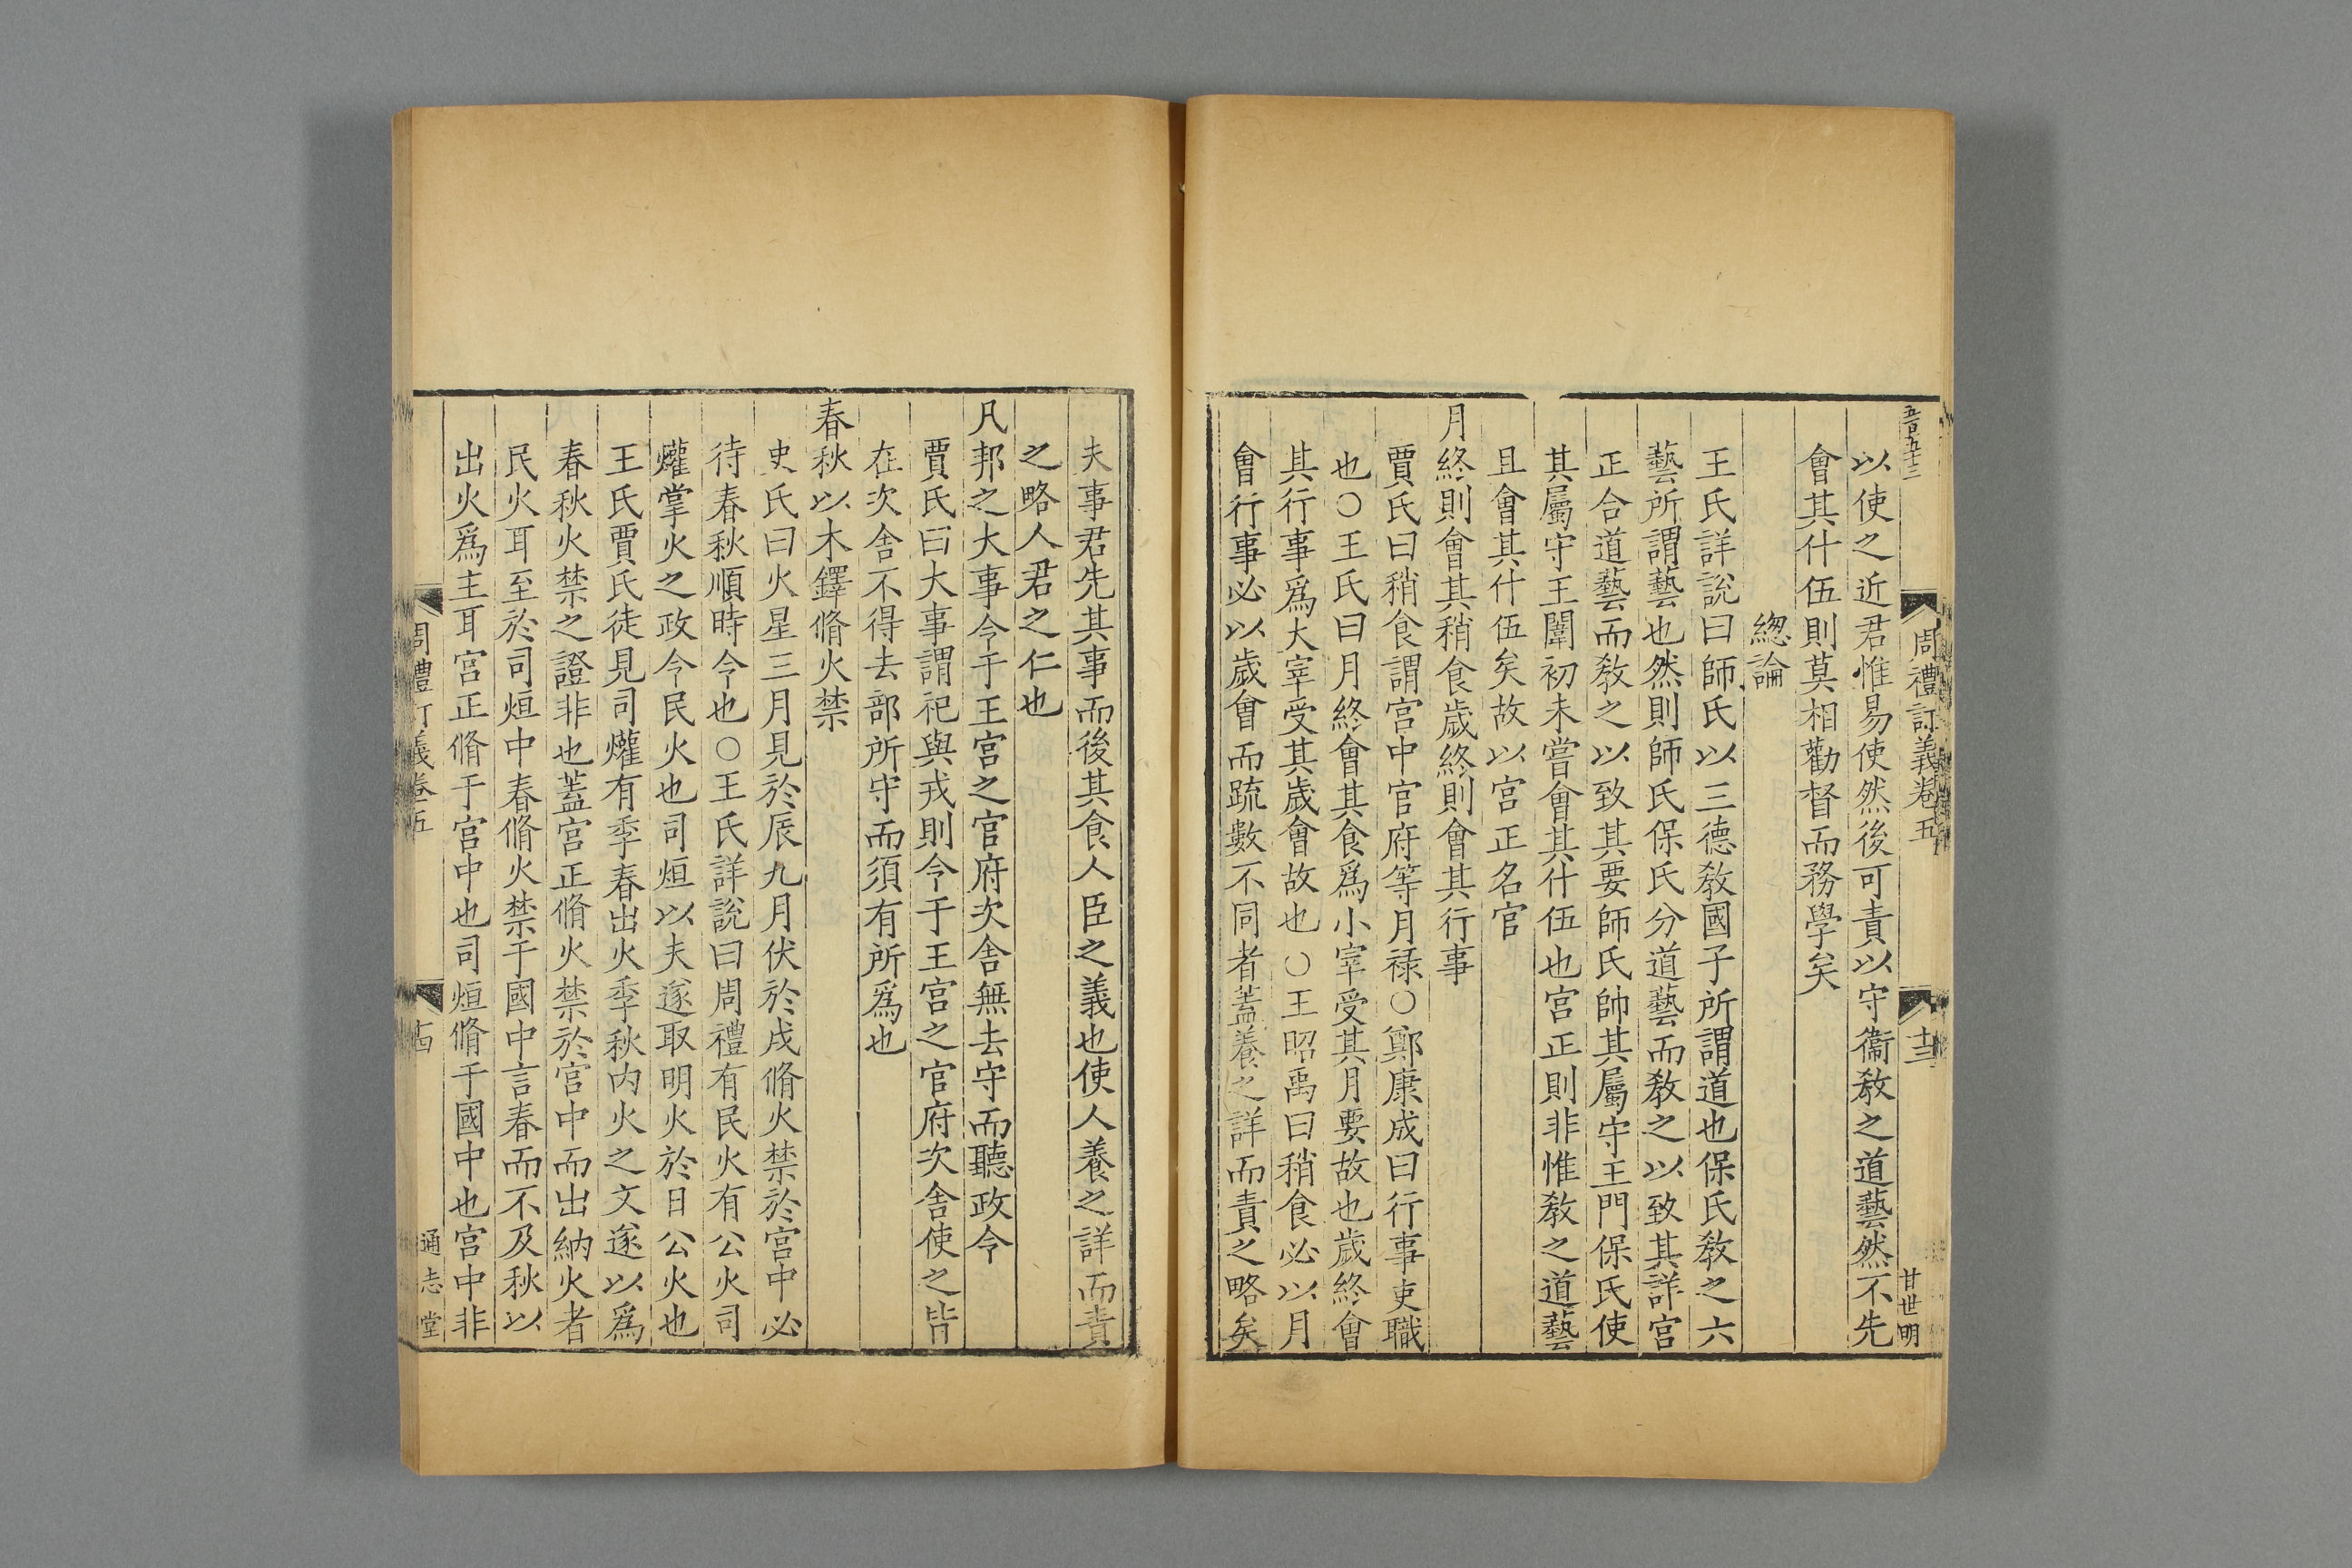 五百五十三
周禮訂義卷五
十三
甘世明
以使之近君惟易使然後可責以守衞敎之道藝然不先
會其什伍則莫相勸督而務學矣
緫論
王氏詳說曰師氏以三德敎國子所謂道也保氏敎之六
藝所謂藝也然則師氏保氏分道藝而敎之以致其詳宫
正合道藝而敎之以致其要師氏帥其屬守王門保氏使
其屬守王闈初未嘗會其什伍也宫正則非惟敎之道藝
且會其什伍矣故以宫正名官
月終則會其稍食歲終則會其行事
賈氏曰稍食謂宫中官府等月禄○鄭康成曰行事吏職
也○王氏曰月終會其食爲小宰受其月要故也歲終會
其行事爲大宰受其歲會故也○王昭禹曰稍食必以月
會行事必以歲會而疏數不同者蓋養之詳而責之略矣
夫事君先其事而後其食人臣之義也使人養之詳而責
之略人君之仁也
凡邦之大事令于王宫之官府次舍無去守而聽政令
賈氏曰大事謂祀與戎則令于王宫之官府次舍使之皆
在次舍不得去部所守而須有所爲也
春秋以木鐸脩火禁
史氏曰火星三月見於辰九月伏於戌脩火禁於宫中必
待春秋順時令也○王氏詳說曰周禮有民火有公火司
爟掌火之政令民火也司烜以夫遂取明火於日公火也
王氏賈氏徒見司爟有季春出火季秋内火之文遂以爲
春秋火禁之證非也蓋宫正脩火禁於宫中而出納火者
民火耳至於司烜中春脩火禁于國中言春而不及秋以
出火爲主耳宫正脩于宫中也司烜脩于國中也宫中非
周禮訂義卷五
十四
通志堂